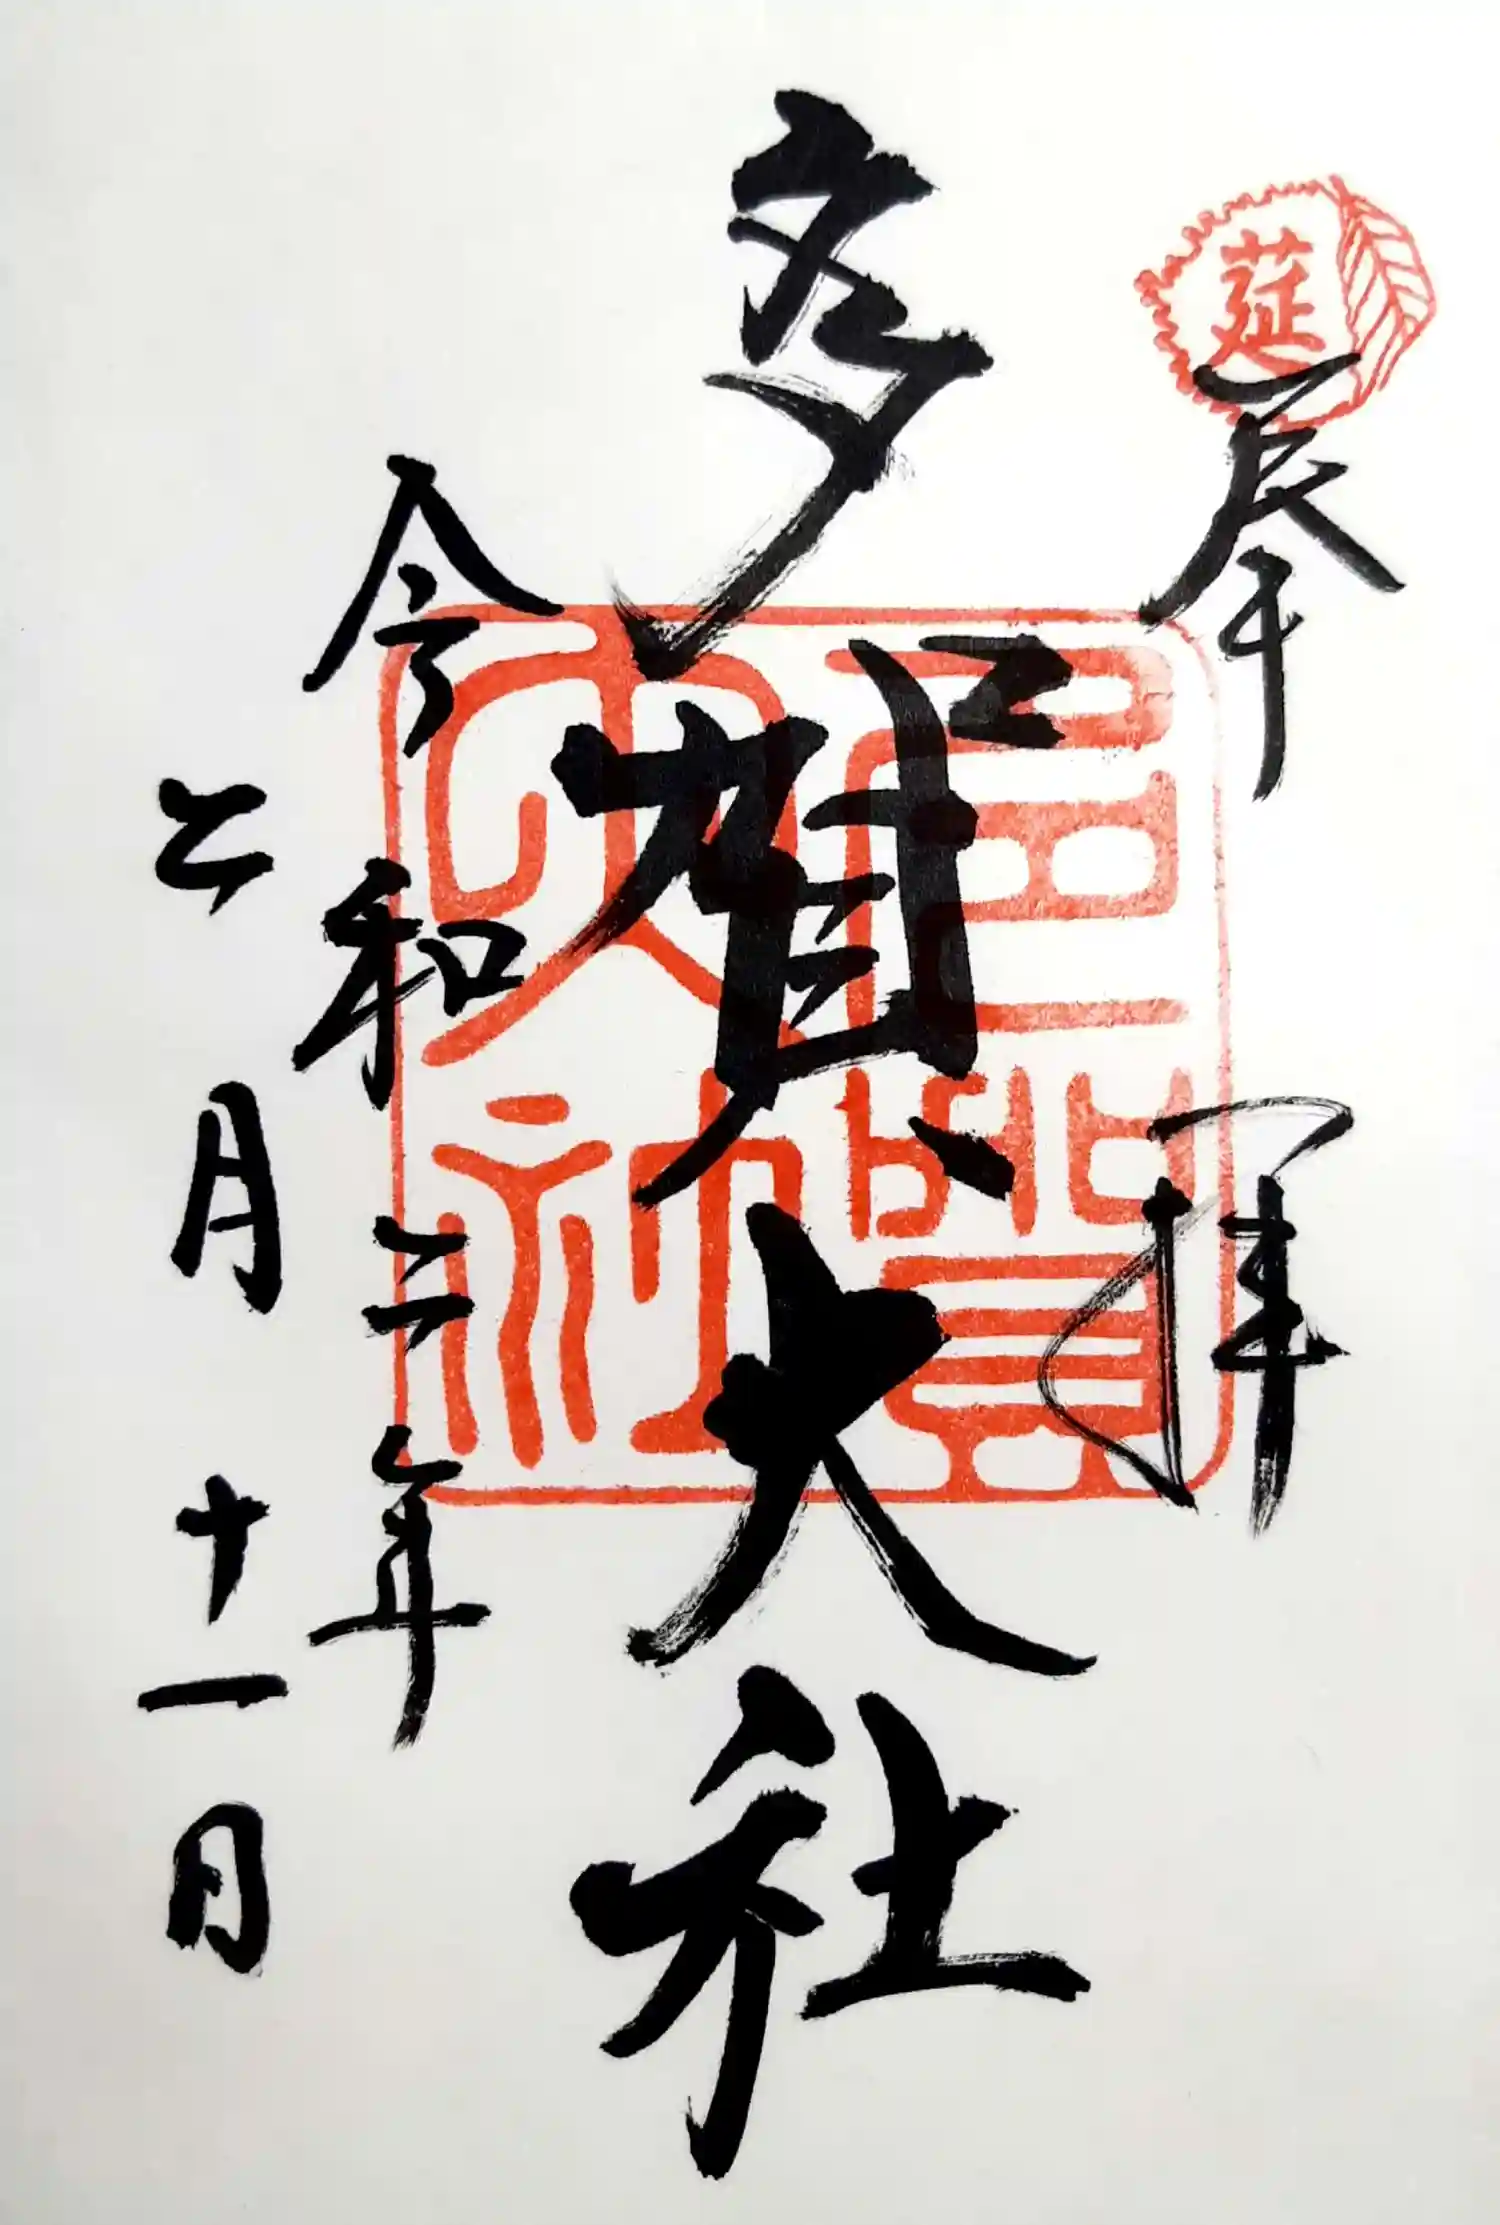 莚
奉拝
多賀大社
多賀
大社
令和二年
二月十一日